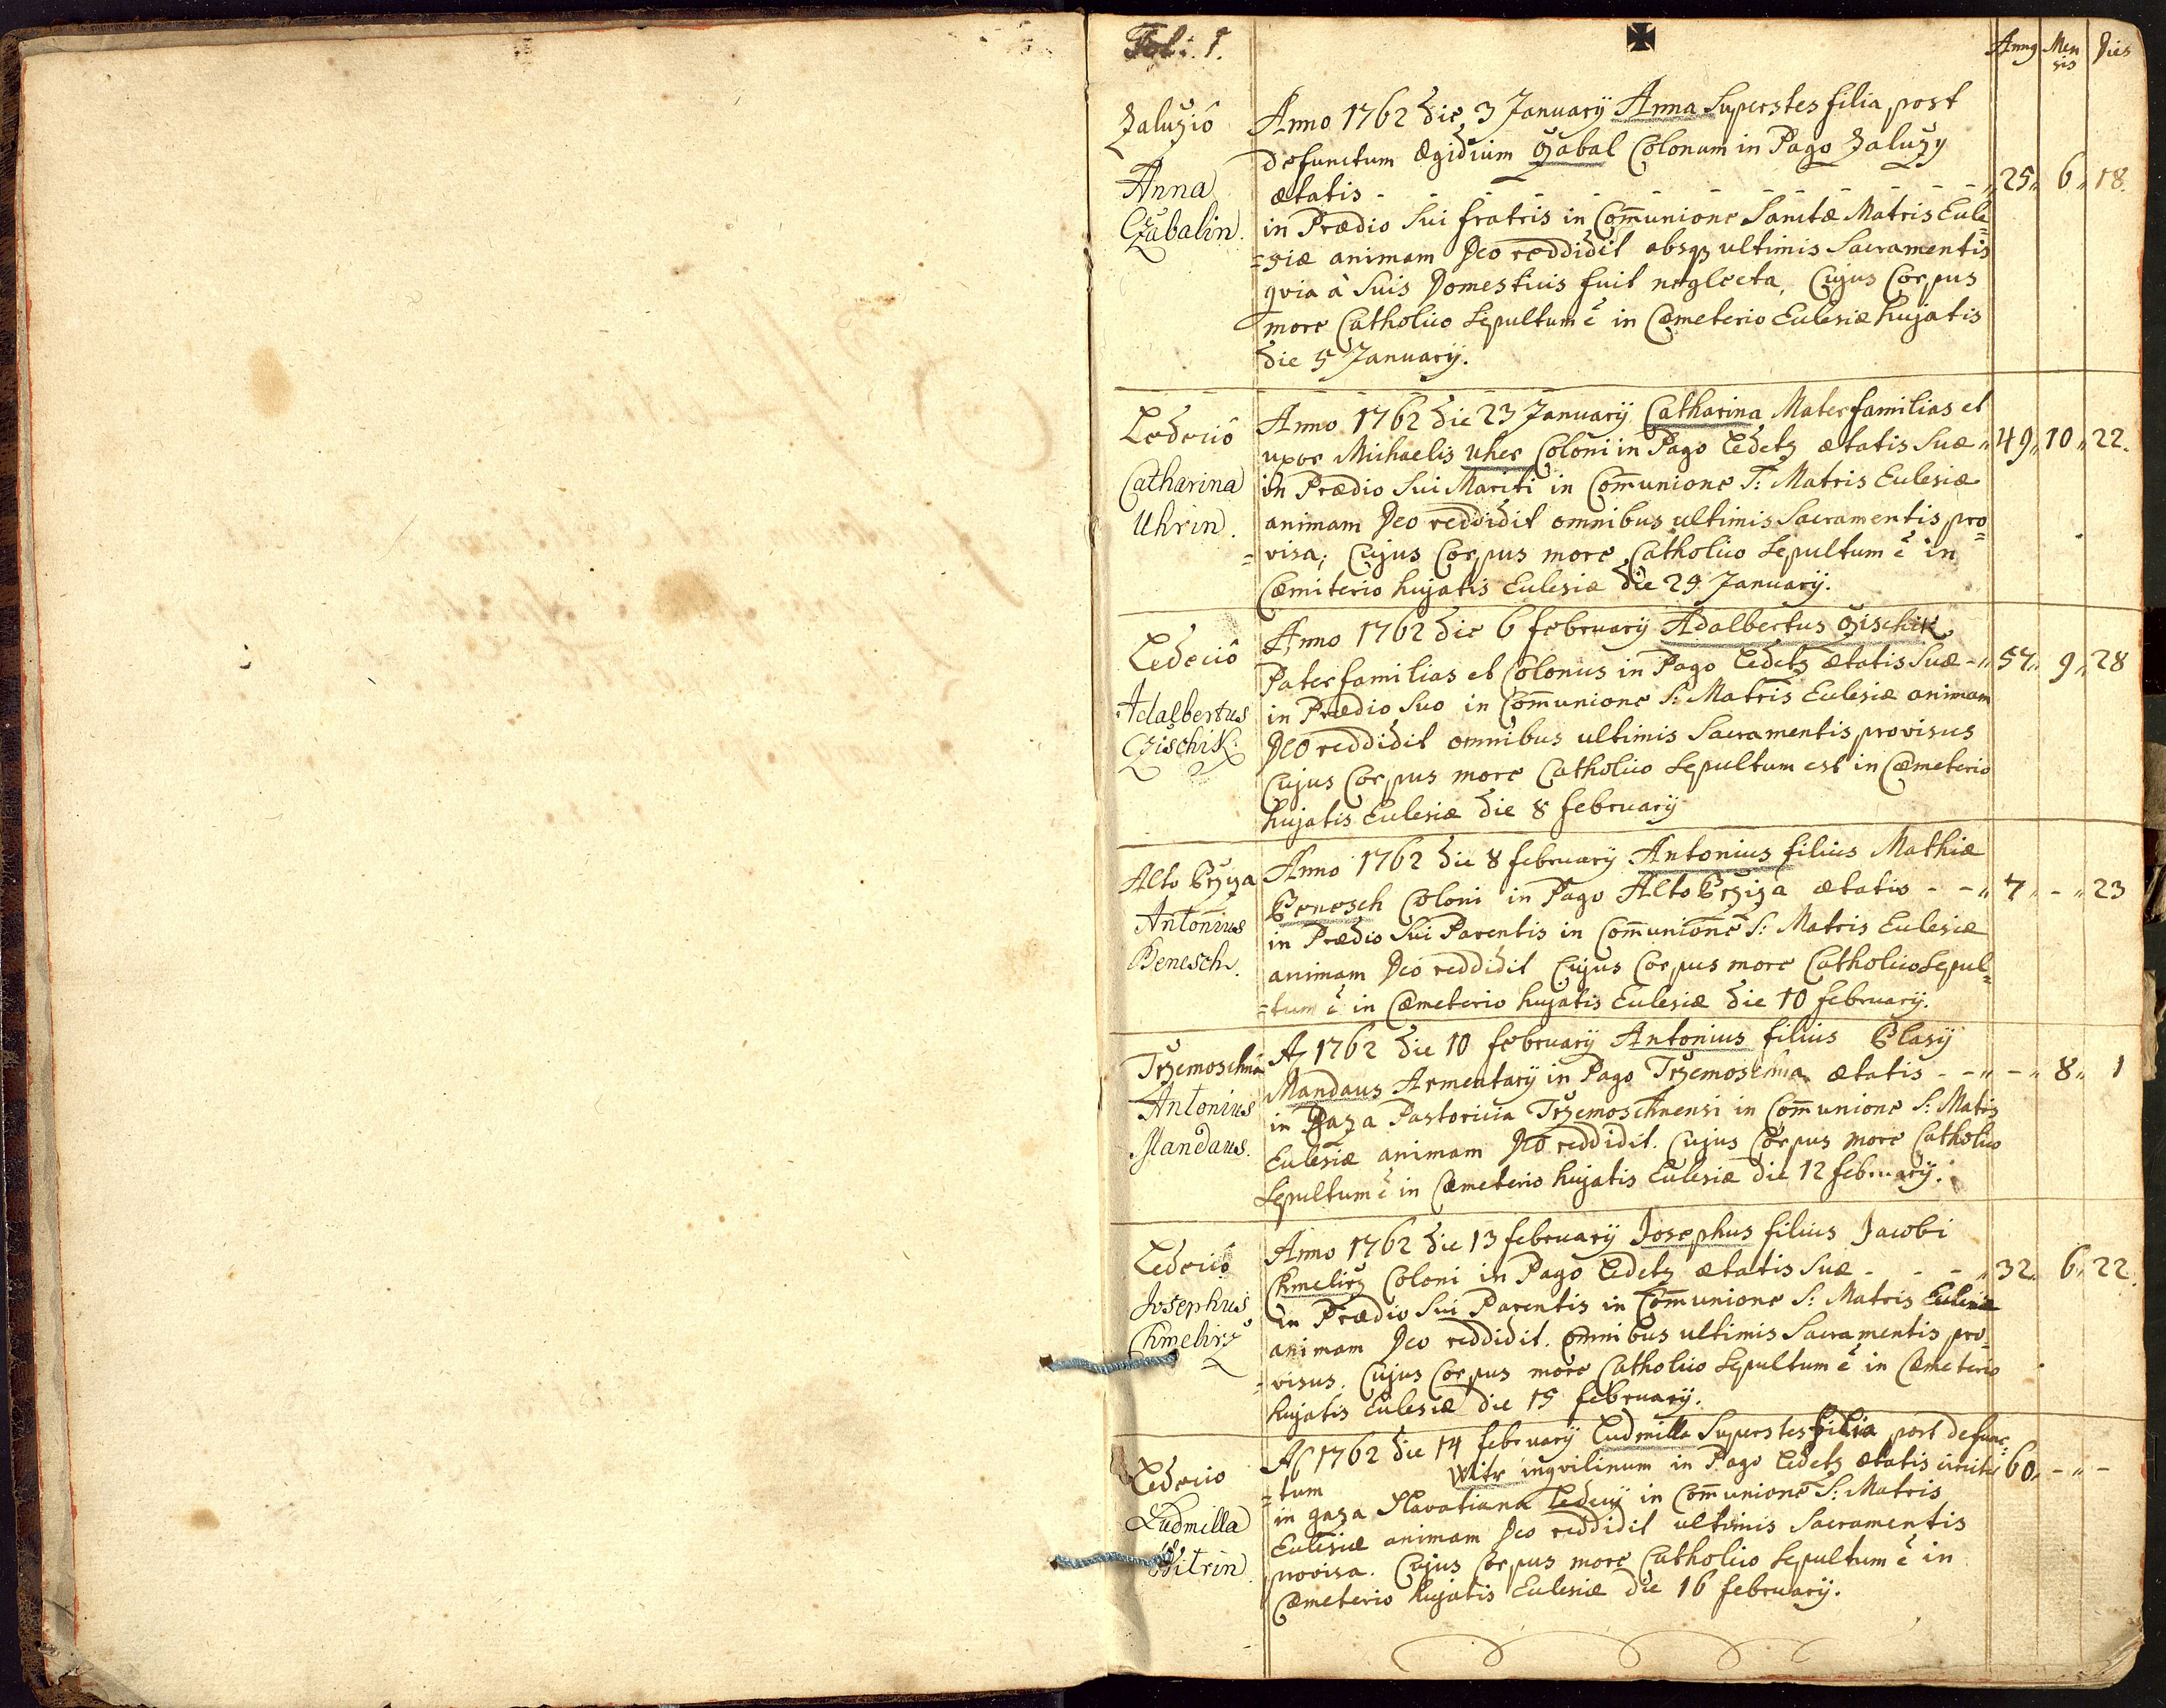 Fol: 1.
Anno Men sis Dies
Zaluziô
Anna
Czabalin.
Anno 1762 die 3 January Anna Superstes filia post
defunctum Ægidium Czabal Colonum in Pago Zaluzy
ætatis - - - - - - - - - - - „ 25„ 6„ 18.
in Prædio Sui fratris in Com̄unione Sanctæ Matris Eccle=
=siæ animam Deo reddidit absq3 ultimis Sacramentis
qvia à Suis Domesticis fuit neglecta, Cujus Corpus
more Catholico Sepultum ē in Cœmeterio Ecclesiæ hujatis
die 5 January.
Ledeciô
Catharina
Uhrin.
Anno 1762 die 23 January Catharina Mater familias et
uxor Michaelis Uher Coloni in Pago Ledetz ætatis Suæ „ 49„ 10„ 22.
in Prædio Sui Mariti in Com̄unione S: Matris Ecclesiæ
animam Deo reddidit omnibus ultimis Sacramentis pro=
=visa; Cujus Corpus more Catholico Sepultum ē in
Cœmiterio hujatis Ecclesiæ die 25 January.
Ledeciô
Adalbertus
Czischik
Anno 1762 die 6 february Adalbertus Czischik
Pater familias et Colonus in Pago Ledetz ætatis Suæ - „ 57„ 9„ 28
in Prædio Suo in Com̄unione S: Matris Ecclesiæ animam
Deo reddidit omnibus ultimis Sacramentis provisus
Cujus Corpus more Catholico Sepultum est in Cœmeterio
hujatis Ecclesiæ die 8 february
Alto Brziza
Antonius
Benesch.
Anno 1762 die 8 february Antonius filius Mathiæ
Benesch Coloni in Pago Alto Brziza ætatis - - „ 7„ - „ 23
in Prædio Sui Parentis in Com̄unione S: Matris Ecclesiæ
animam Deo reddidit Cujus Corpus more Catholico Sepul=
=tum ē in Cœmeterio hujatis Ecclesiæ die 10 february.
Trzemoschnâ
Antonius
Mandaus.
Aõ 1762 die 10 february Antonius filius Blasy
Mandaus Armentary in Pago Trzemoschna ætatis - - „ - „ 8„ 1
in Gaza Pastoricia Trzemoschnensi in Com̄unione S: Matris
Ecclesiæ animam Deo reddidit. Cujus Corpus more Catholico
Sepultum ē in Cœmeterio hujatis Ecclesiæ die 12 february.
Ledeciô
Josephus
Chmelirz
Anno 1762 die 13 february Josephus filius Jacobi
Chmelirz Coloni in Pago Ledetz ætatis Suæ - - - „ 32„ 6„ 22.
in Prædio Sui Parentis in Com̄unione S: Matris Ecclesiæ
animam Deo reddidit. omnibus ultimis Sacramentis pro=
=visus. Cujus Corpus more Catholico Sepultum ē in Cœmeterio
hujatis Ecclesiæ die 15 february.
Ledecio
Ludmilla
Witrin
Aõ 1762 die 14 february Ludmilla Superstes filia post defunc=
=tum Witr inqvilinum in Pago Ledetz ætatis circiter 60„ - „ -
in gaza Slavatiana Ledecij in Com̄unione S: Matris
Ecclesiæ animam Deo reddidit ultimis Sacramentis
provisa. Cujus Corpus more Catholico Sepultum ē in
Cœmeterio hujatis Ecclesiæ die 16 february.